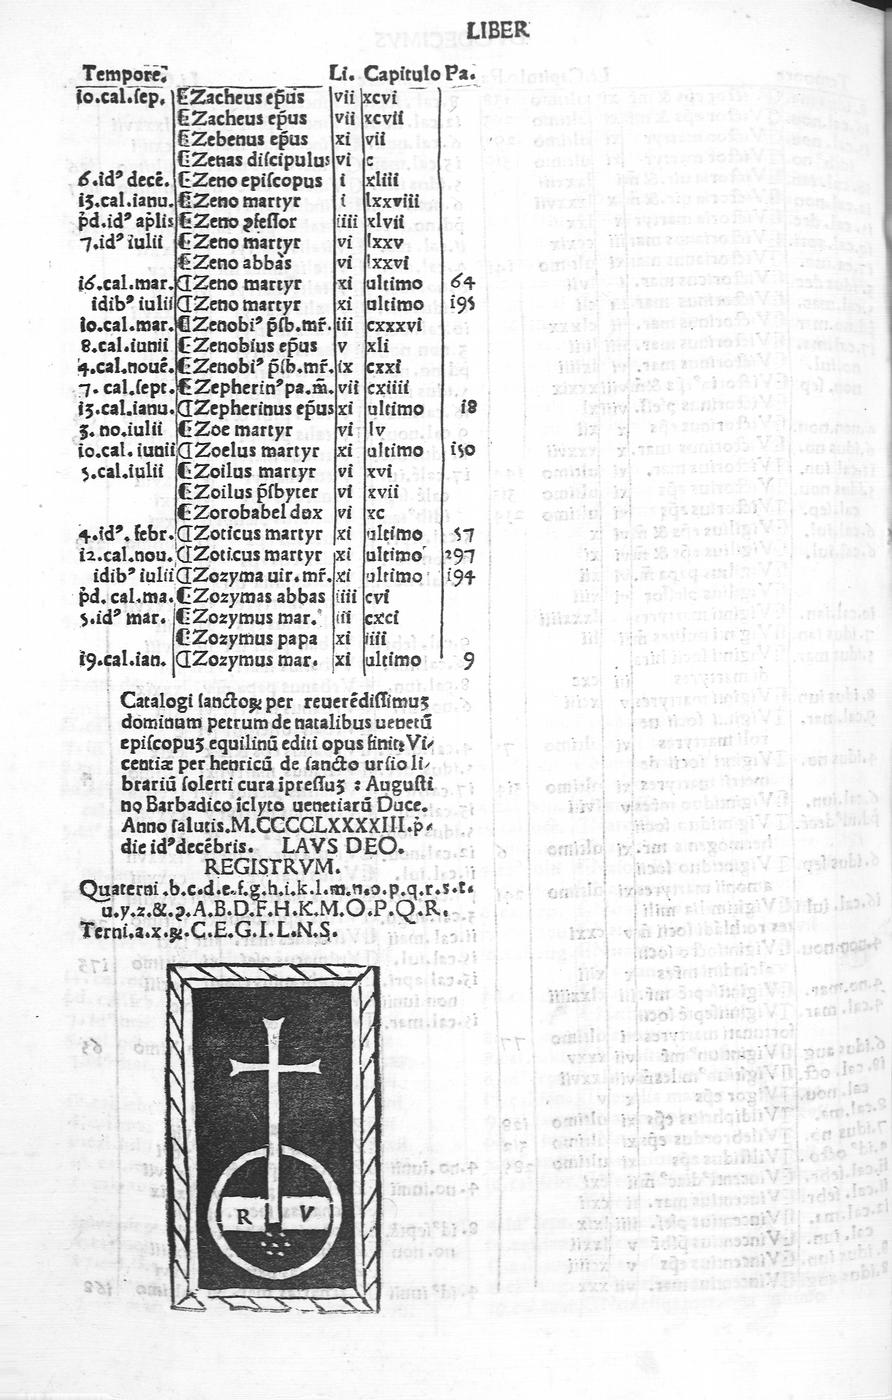 LIBER
Tempore. Li. Capitulo Pa.
io.cal.sep. ⸿Zacheus ep̃us vii xcvi
⸿Zacheus ep̃us vii xcvii
⸿Zebenus ep̃us xi vii
⸿Zenas discipulus vi c
6.idꝰ decẽ. ⸿Zeno episcopus i xliii
i3.cal.ianu. ⸿Zeno martyr i lxxviii
p̃d.idꝰ ap̃lis ⸿Zeno ꝯfessor iiii xlvii
7.idꝰ iulii ⸿Zeno martyr vi lxxv
⸿Zeno abbas vi lxxvi
i6.cal.mar. ⸿Zeno martyr xi ultimo 64
idibꝰ iulii ⸿Zeno martyr xi ultimo i95
io.cal.mar. ⸿Zenobiꝰ p̃sb.mr̃. iii cxxxvi
8.cal.iunii ⸿Zenobius ep̃us v xli
4.cal.nouẽ. ⸿Zenobiꝰ p̃sb.mr̃. ix cxxi
7. cal.sept. ⸿Zepherinꝰ pa.m̃. vii cxiiii
i3.cal.ianu. ⸿Zepherinus ep̃us xi ultimo i8
3. no.iulii ⸿Zoe martyr vi lv
io.cal. iunii ⸿Zoelus martyr xi ultimo i50
5.cal.iulii ⸿Zoilus martyr vi xvi
⸿Zoilus p̃sbyter vi xvii
⸿Zorobabel dux vi xc
4.idꝰ. febr. ⸿Zoticus martyr xi ultimo 57
i2.cal.nou. ⸿Zoticus martyr xi ultimo 297
idibꝰ iulii ⸿Zozyma uir. mr̃. xi ultimo i94
p̃d. cal.ma. ⸿Zozymas abbas iiii cvi
5.idꝰ mar. ⸿Zozymus mar. iii cxci
⸿Zozymus papa xi iiii
i9.cal.ian. ⸿Zozymus mar. xi ultimo 9
Catalogi sanctoꝝ per reuerẽdissimuꝫ
dominum petrum de natalibus uenetũ
episcopuꝫ equilinũ editi opus finit: Vi⸗
centiæ per henricũ de sancto ursio li⸗
brariũ solerti cura ĩpressuꝫ : Augusti
no Barbadico ĩclyto uenetiarũ Duce.
Anno salutis.M.CCCCLXXXXIII.p̃⸗
die idꝰ decẽbris. LAVS DEO.
REGISTRVM.
Quaterni .b.c.d.e.f.g.h.i.k.l.m.n.o.p.q.r.s.t.
u.y.z.&.ꝯ.A.B.D.F.H.K.M.O.P.Q.R.
Terni.a.x.ꝝ.C.E.G.I.L.N.S.
R V